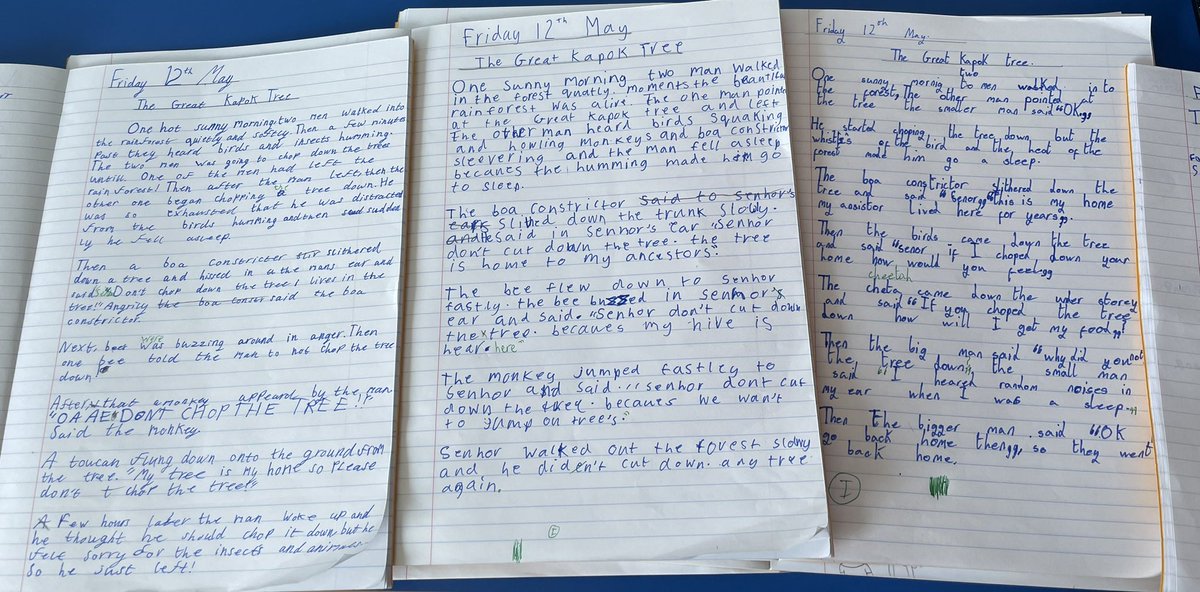 Friday 12th May
The Great Kapok Tree
One hot sunny Morning two men walked into
the rainforest quietly and softly. Then a few minutes
Past they heard birds and insects humming.
The two men was going to chop down the trees
untill one of the men had left the
rain forest! Then after the man left, then the
other one began chopping a tree down. He
was so exhausted that he was distracted
from the birds humming and then sudden
ly he fell asleep.
Then a boa constricter slithered
down a tree and hissed in a the mans ear and
said Don't chop down the tree I lives in the
tree!" Angrily said the boa
constrictor.
Next, bees were buzzing around in anger. Then
one bee told the man to not chop the tree
down!
After that a monkey appeard by the man.
"OA AE DON'T CHOP THE TREE!!"
Said the monkey.
A toucan flyng down onto the ground from
the tree. "My tree is my home so Please
don't chop the tree!"
A few hours later the man woke up and
he thought he should chop it down but he
fele sorry for the insects and animals
So he just left!
Friday 12th May
The Great Kapok Tree
One sunny morning two man walked
in the forest quatly. moments the beautiful
rainforest was alive. the one man point
at the Great Kapok tree and left
The other man heard birds squaking
and howling monkeys and boa constrictor
sleevering and the man fell asleep
becaues the humming made him go
to sleep.
The boa constrictor said to Senhor's
ear slithed down the trunk slowly.
said in Senhor's ear "Senhor
don't cut down the tree. the tree
is home to my ancestors.
The bee flew down to Senhor
fastly. the bee buzzed in Senhor's
ear and said. "Senhor don't cut down
the tree. becaues my hive is
hear. here"
The monkey jumped fastley to
Senhor and said. "senhor dont cut
down the tree. becaues we wan't
to jump on tree's."
Senhor walked out the forest slowly
and he diden't cut down. any tree
again.
I
Friday 12th May.
The Great Kapok Tree.
One sunny mornig two men walked in to
the forest, The other man pointed at
the tree the smaller man said "OK"
He started choping the tree down but the
whistls of the bird and the heat of the
forest made him go a sleep.
The boa constrictor slithered down the
tree and said "Senor" "this is my home
my assistor lived here for years".
Then the birds came down the tree
and said "senor if I choped down your
home how would you feel"
cheetah
The cheta came down the under storey
and said "If you choped the tree
down how will I get my food"!
Then the big man said "why did you not
the tree down" the small man
said "I heared random noises in
my ear when I was a sleep."
Then the bigger man said "OK
go back home then", so they went
back home.
I